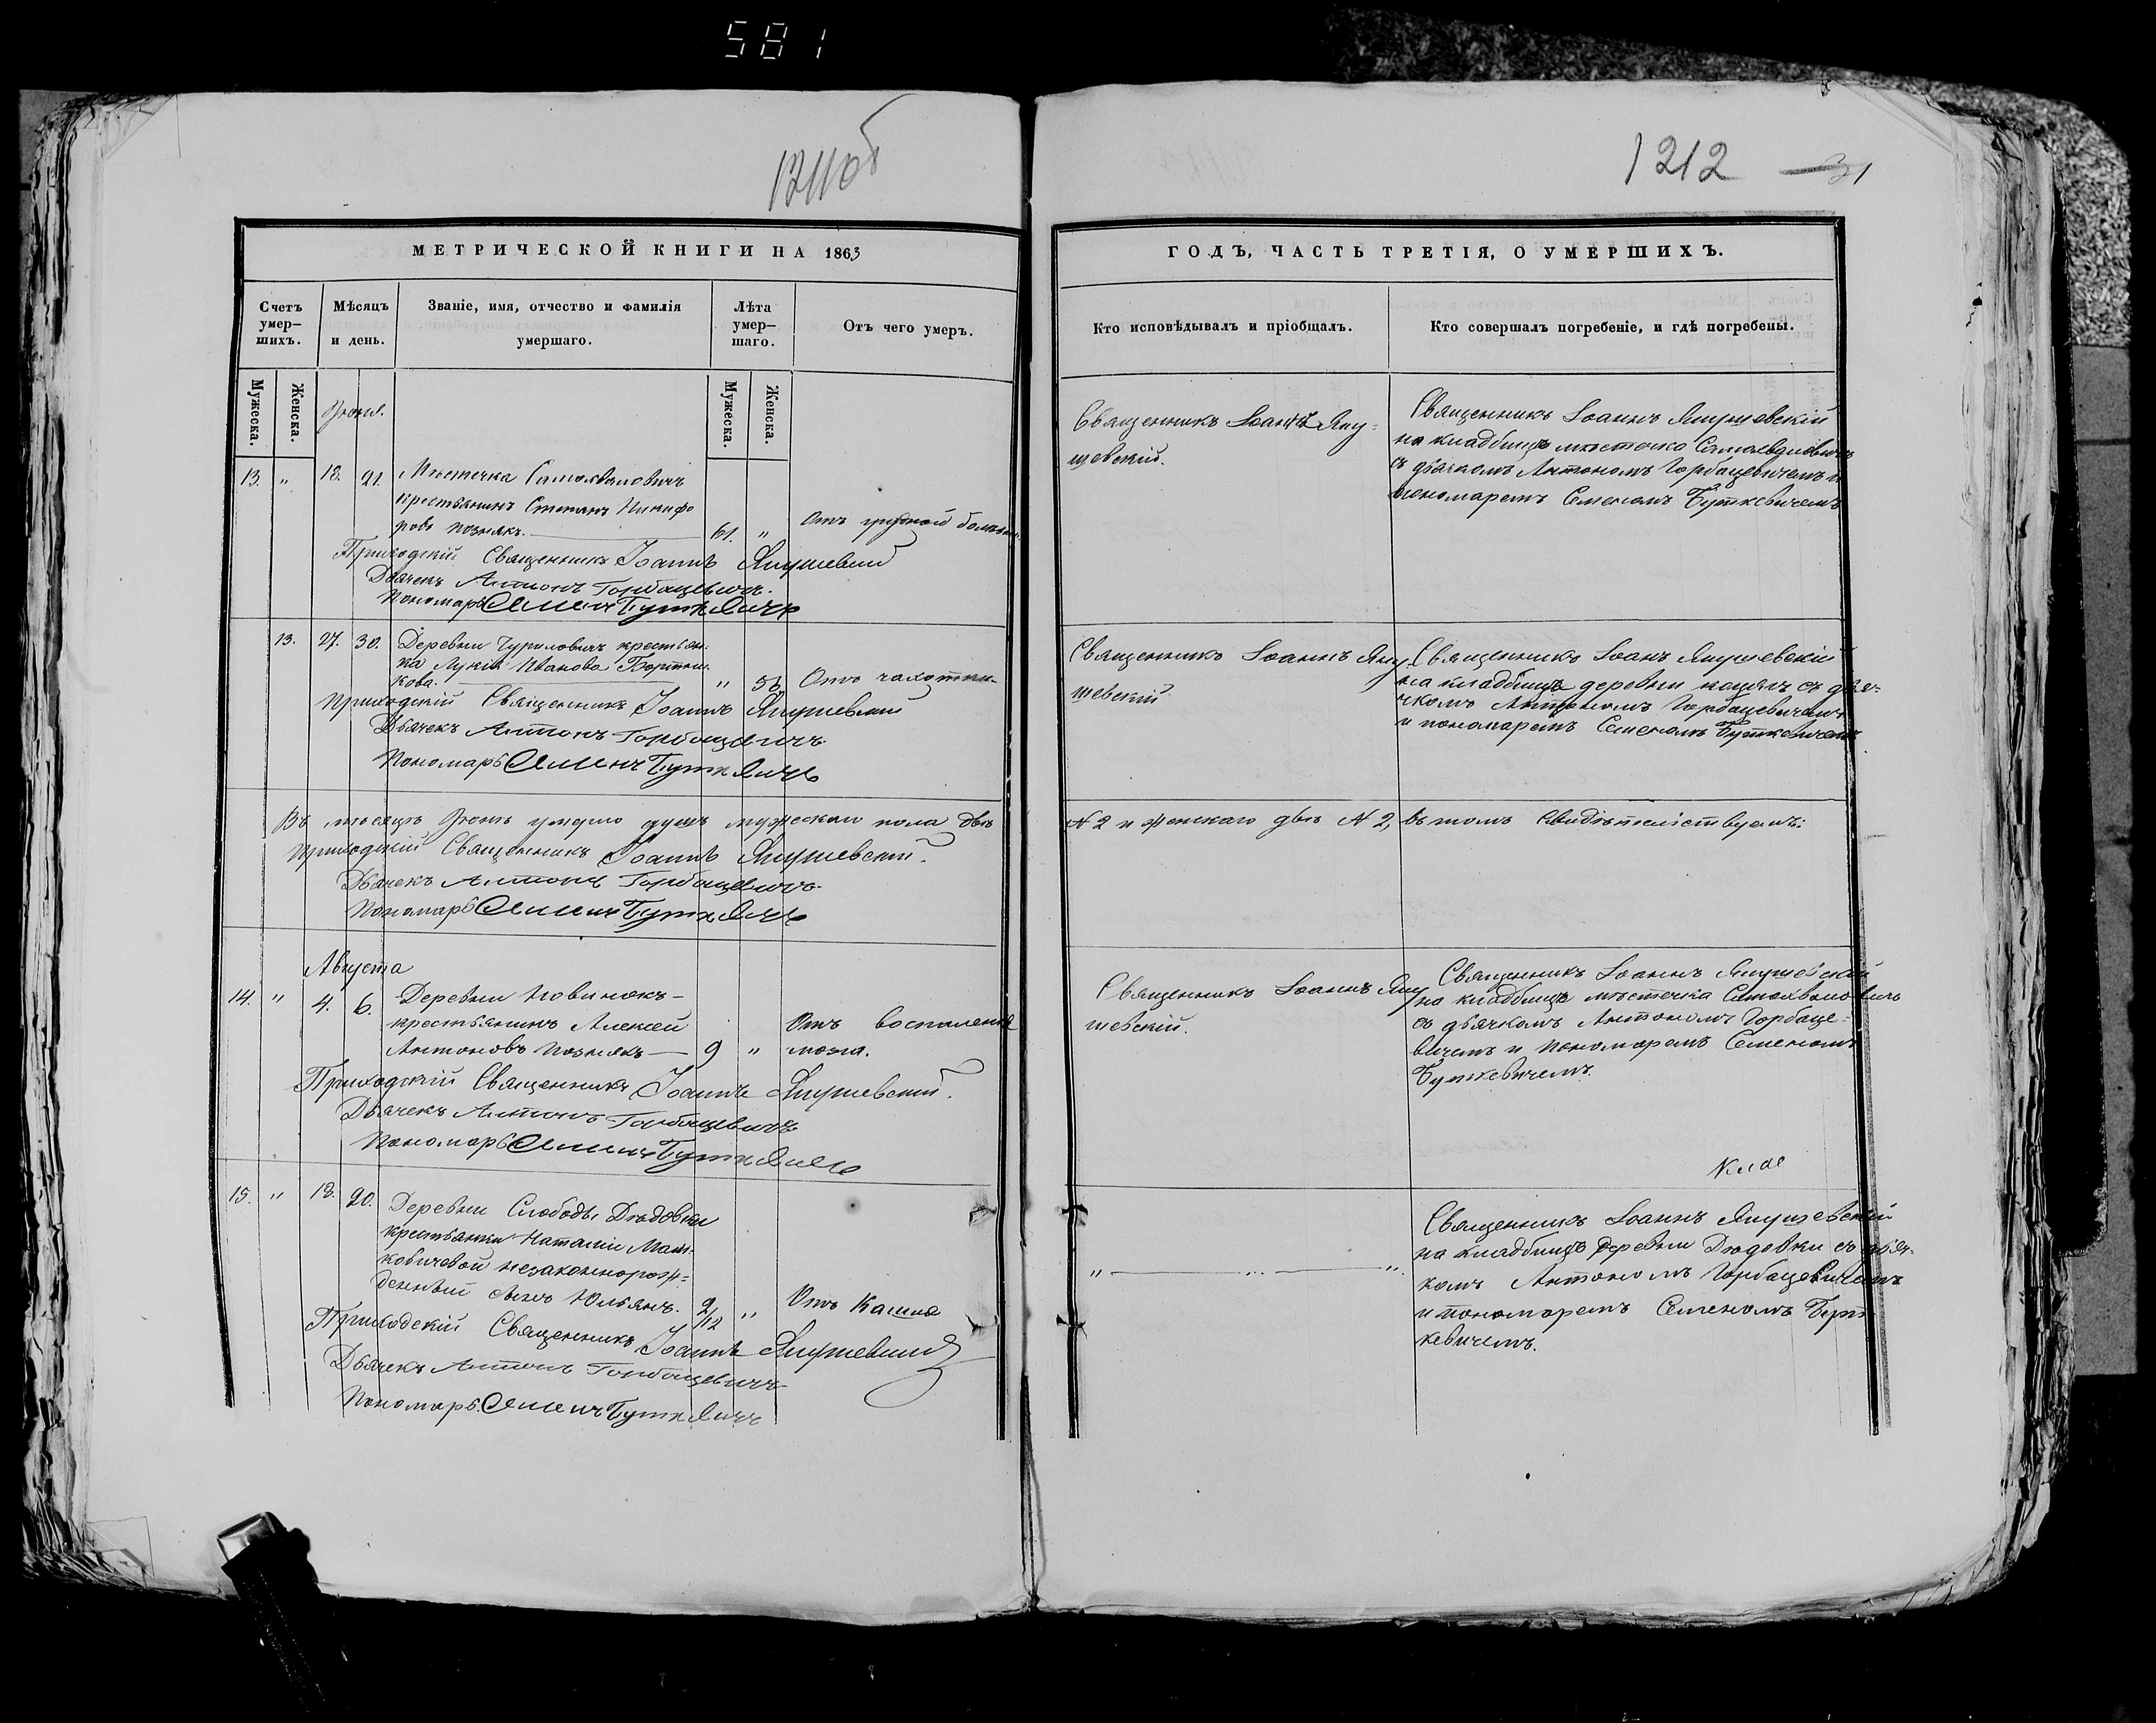 581
1211об
1212
31
МЕТРИЧЕСКОЙ КНИГИ НА 1863
Счетъ умер-
шихъ.
Мѣсяцъ
и день.
Званіе, имя, отчество и фамилія
умершаго.
Лѣта
умер-
шаго.
Отъ чего умеръ.
Мужеска.
Женска.
Мужеска.
Женска.
13. " 18. 21. Мѣстечка Самохваловичъ
крестьянинъ Степанъ Никифо
ровъ Познякъ. 61. " Отъ грудной болѣзни.
Приходскій Священникъ Іоаннъ Янушевскій
Дьячекъ Антонъ Горбацевичъ.
Пономарь Семенъ Буткевичъ
13. 27. 30. Деревни Чуриловичъ крестьян-
ка Иванова
кова. " 56 Отъ чахотки
Приходскій Священникъ Іоаннъ Янушевскій
Дьячекъ Антонъ Горбацевичъ
Пономарь Семенъ Буткевичъ
Въ мѣсяцѣ умерло душъ мужескаго пола двѣ
Приходскій Священникъ Іоаннъ Янушевскій.
Дьячекъ Антонъ Горбацевичъ.
Пономарь Семенъ Буткевичъ
Августа
14. " 4. 6. Деревни Новинокъ
крестьянинъ Алексей
Антоновъ Познякъ 9 " Отъ воспаленія
мозга.
Приходскій Священникъ Іоаннъ Янушевскій.
Дьячекъ Антонъ Горбацевичъ
Пономарь Семенъ Буткевичъ
15. " 18. 20. Деревни Слободы Дѣдовки
крестьянки Наталіи Маш-
ковичевой незаконнорож-
денный сынъ Юльянъ. 2/12 " Отъ кашля
Приходскій Священникъ Іоаннъ Янушевскій
Дьячекъ Антонъ Горбацевичъ
Пономарь Семенъ Буткевичъ
ГОДЪ, ЧАСТЬ ТРЕТІЯ, О УМЕРШИХЪ.
Кто исповѣдывалъ и пріобщалъ.
Кто совершалъ погребеніе, и гдѣ погребены.
Священникъ Іоаннъ Яну-
шевскій.
Священникъ Іоаннъ Янушевскій
на кладбищѣ мѣстечка Самохваловичъ
съ дьячкомъ Антономъ Горбацевичемъ и
пономаремъ Семеномъ Буткевичемъ
Священникъ Іоаннъ Яну-
шевскій
Священникъ Іоанъ Янушевскій
на кладбищѣ деревни съ дья-
чкомъ Антономъ Горбацевичемъ
и пономаремъ Семеномъ Буткевичемъ.
№ 2 и женскаго двѣ № 2, въ томъ свидѣтельствуемъ:
Священникъ Іоаннъ Яну
шевскій.
Священникъ Іоаннъ Янушевскій
на кладбищѣ мѣстечка Самохваловичъ
съ дьячкомъ Антономъ Горбаце-
вичемъ и пономаремъ Семеномъ
Буткевичемъ.
Священникъ Іоаннъ Янушевскій
на кладбищѣ деревни Дѣдовки съ дьяч-
комъ Антономъ Горбацевичемъ
и пономаремъ Семеномъ Бут
кевичемъ.